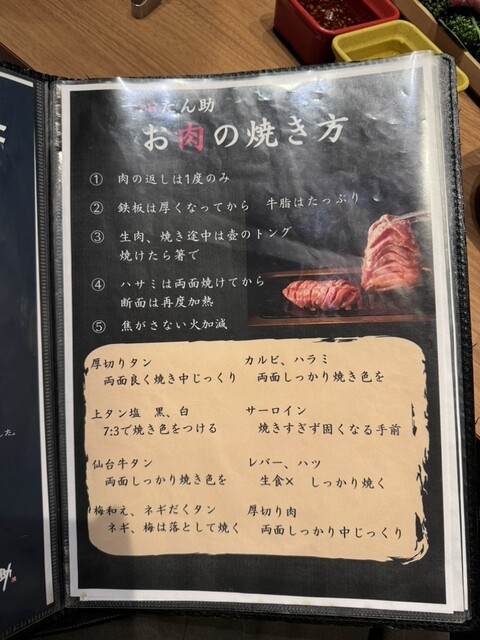 たん助
お肉の焼き方
① 肉の返しは1度のみ
② 鉄板は厚くなってから 牛脂はたっぷり
③ 生肉、焼き途中は壺のトング
焼けたら箸で
④ ハサミは両面焼けてから
断面は再度加熱
⑤ 焦がさない火加減
厚切りタン
両面良く焼き中じっくり
上タン塩 黒、白
7:3で焼き色をつける
仙台牛タン
両面しっかり焼き色を
梅和え、ネギだくタン
ネギ、梅は落として焼く
カルビ、ハラミ
両面しっかり焼き色を
サーロイン
焼きすぎず固くなる手前
レバー、ハツ
生食× しっかり焼く
厚切り肉
両面しっかり中じっくり
した。
助